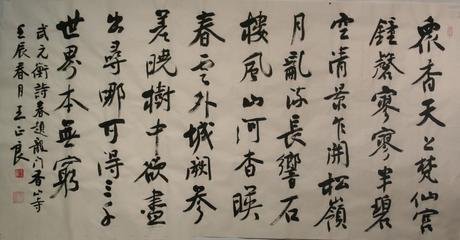 眾香天上梵仙宮
鍾磬寥寥半碧
空清景乍開松嶺
月亂流長響石
樓風山河杳暎
春云外城闕參
差曉樹中欲盡
出尋哪可得三千
世界本無窮
武元衡詩春題龍門香山寺
壬辰春月王正良